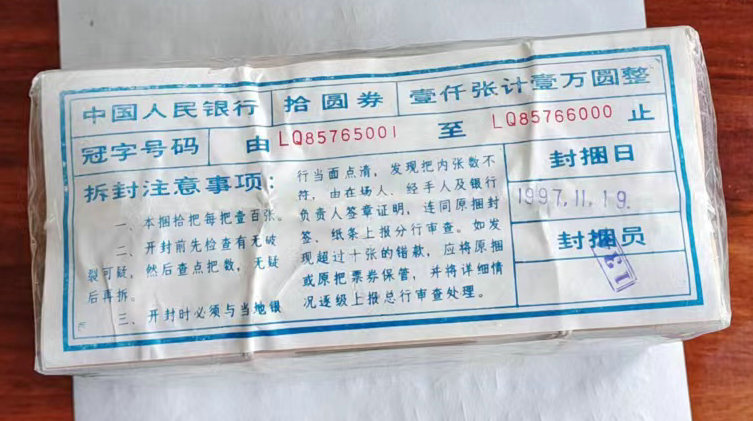 中国人民银行 拾圆券 壹仟张计壹万圆整
冠字号码 由 LQ85765001 至 LQ85766000 止
拆封注意事项：
一、本捆拾把每把壹百张。
二、开封前先检查有无破
裂可疑，然后查点把数，无疑
后再拆。
三、开封时必须与当地银
行当面点清，发现把内张数不
符，由在场人、经手人及银行
负责人签章证明，连同原捆封
签、纸条上报分行审查。如发
现超过十张的错款，应将原捆
或原把票券保管，并将详细情
况逐级上报总行审查处理。
封捆日
1997.11.19.
封捆员